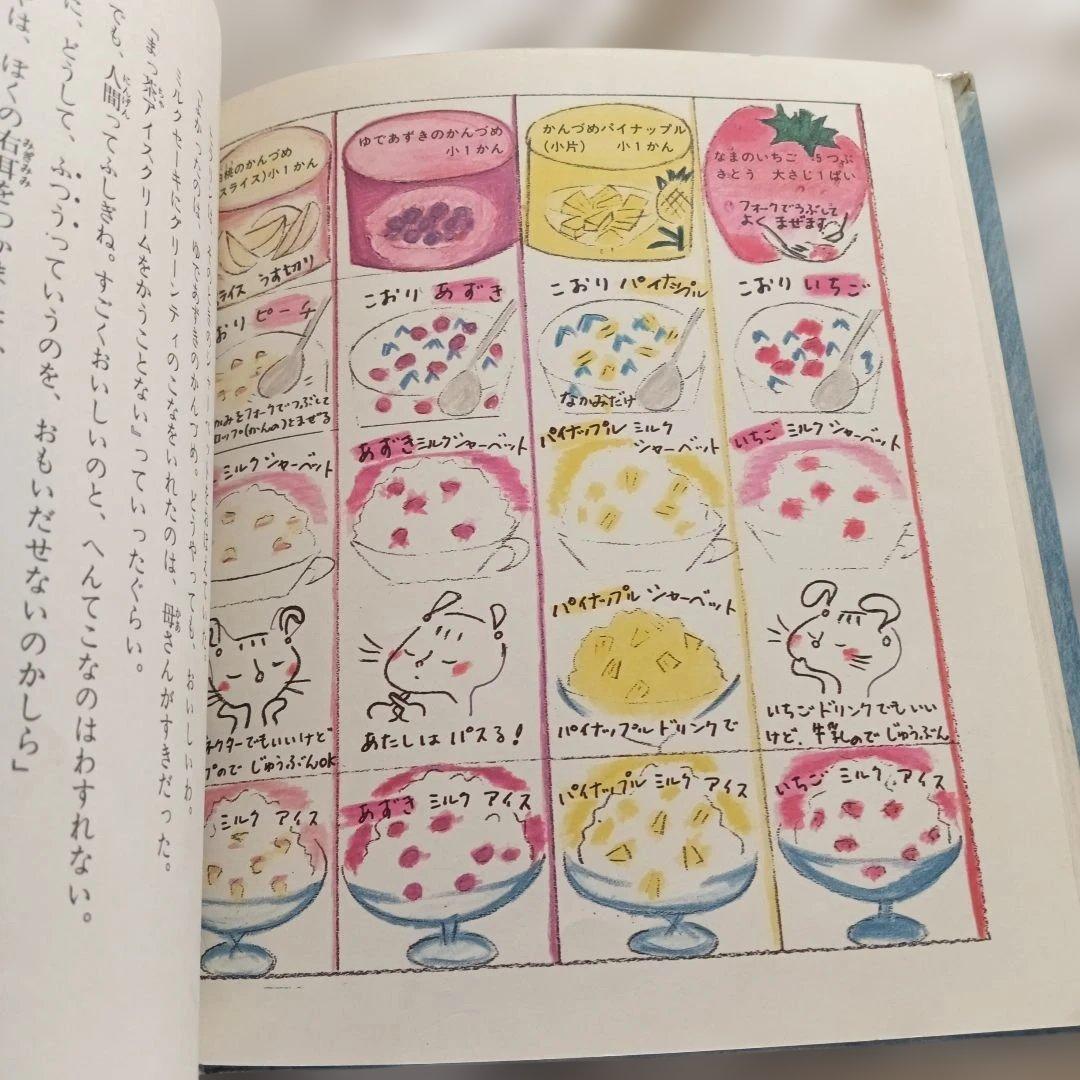 は、ぼくの右耳をつかまえて、
に、どうして、ふつうっていうのを、おもいだせないのかしら」
でも、人間ってふしぎね。すごくおいしいのと、へんてこなのはわすれない。
『まっ茶アイスクリームをかうことない』っていったぐらい。
ミルクセーキにグリーンティのこなをいれたのは、母さんがすきだった。
ゆであずきのかんづめ。どうやっても、おいしいわ。
桃のかんづめ
スライス)小1かん
ライス うす切り
おり ピーチ
かみをフォークでつぶして
ロップ(かんの)とまぜる
ミルク シャーベット
ネクターでもいいけど
プので じゅうぶんOK
ミルク アイス
ゆであずきのかんづめ
小1かん
こおり あずき
あずき ミルク シャーベット
あたしは パスる!
あずき ミルク アイス
かんづめパイナップル
(小片) 小1かん
こおり パイナップル
なかみだけ
パイナップル ミルク
シャーベット
パイナップル シャーベット
パイナップル ドリンクで
パイナップル ミルク アイス
なまのいちご 5つぶ
さとう 大さじ1ぱい
フォークでつぶして
よく まぜます
こおり いちご
いちご ミルク シャーベット
いちごドリンクでもいい
けど、牛乳ので じゅうぶん
いちご ミルク アイス